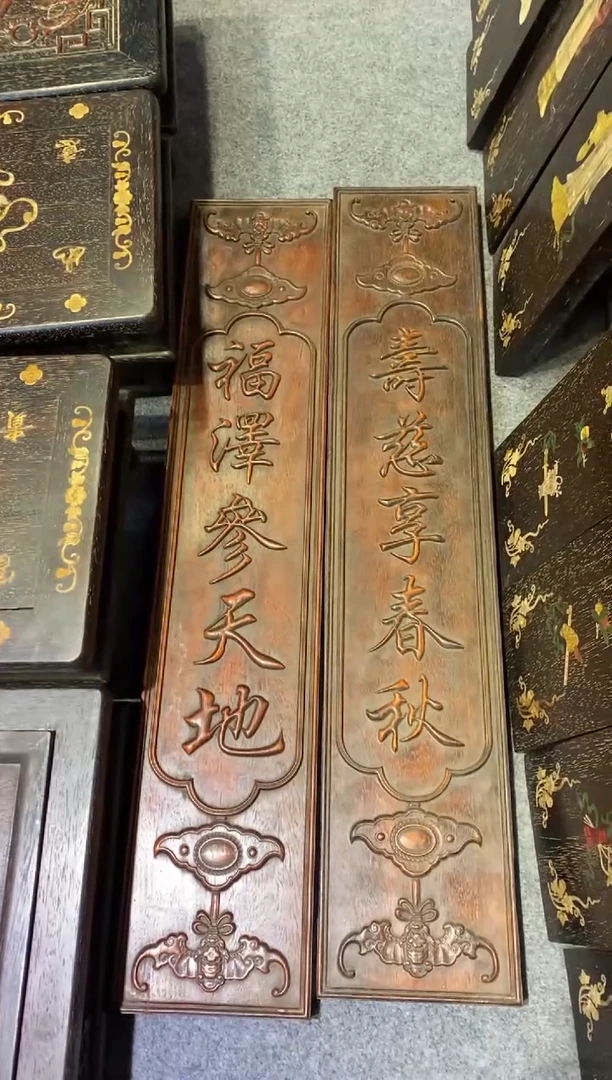 壽慈享春秋
福澤參天地